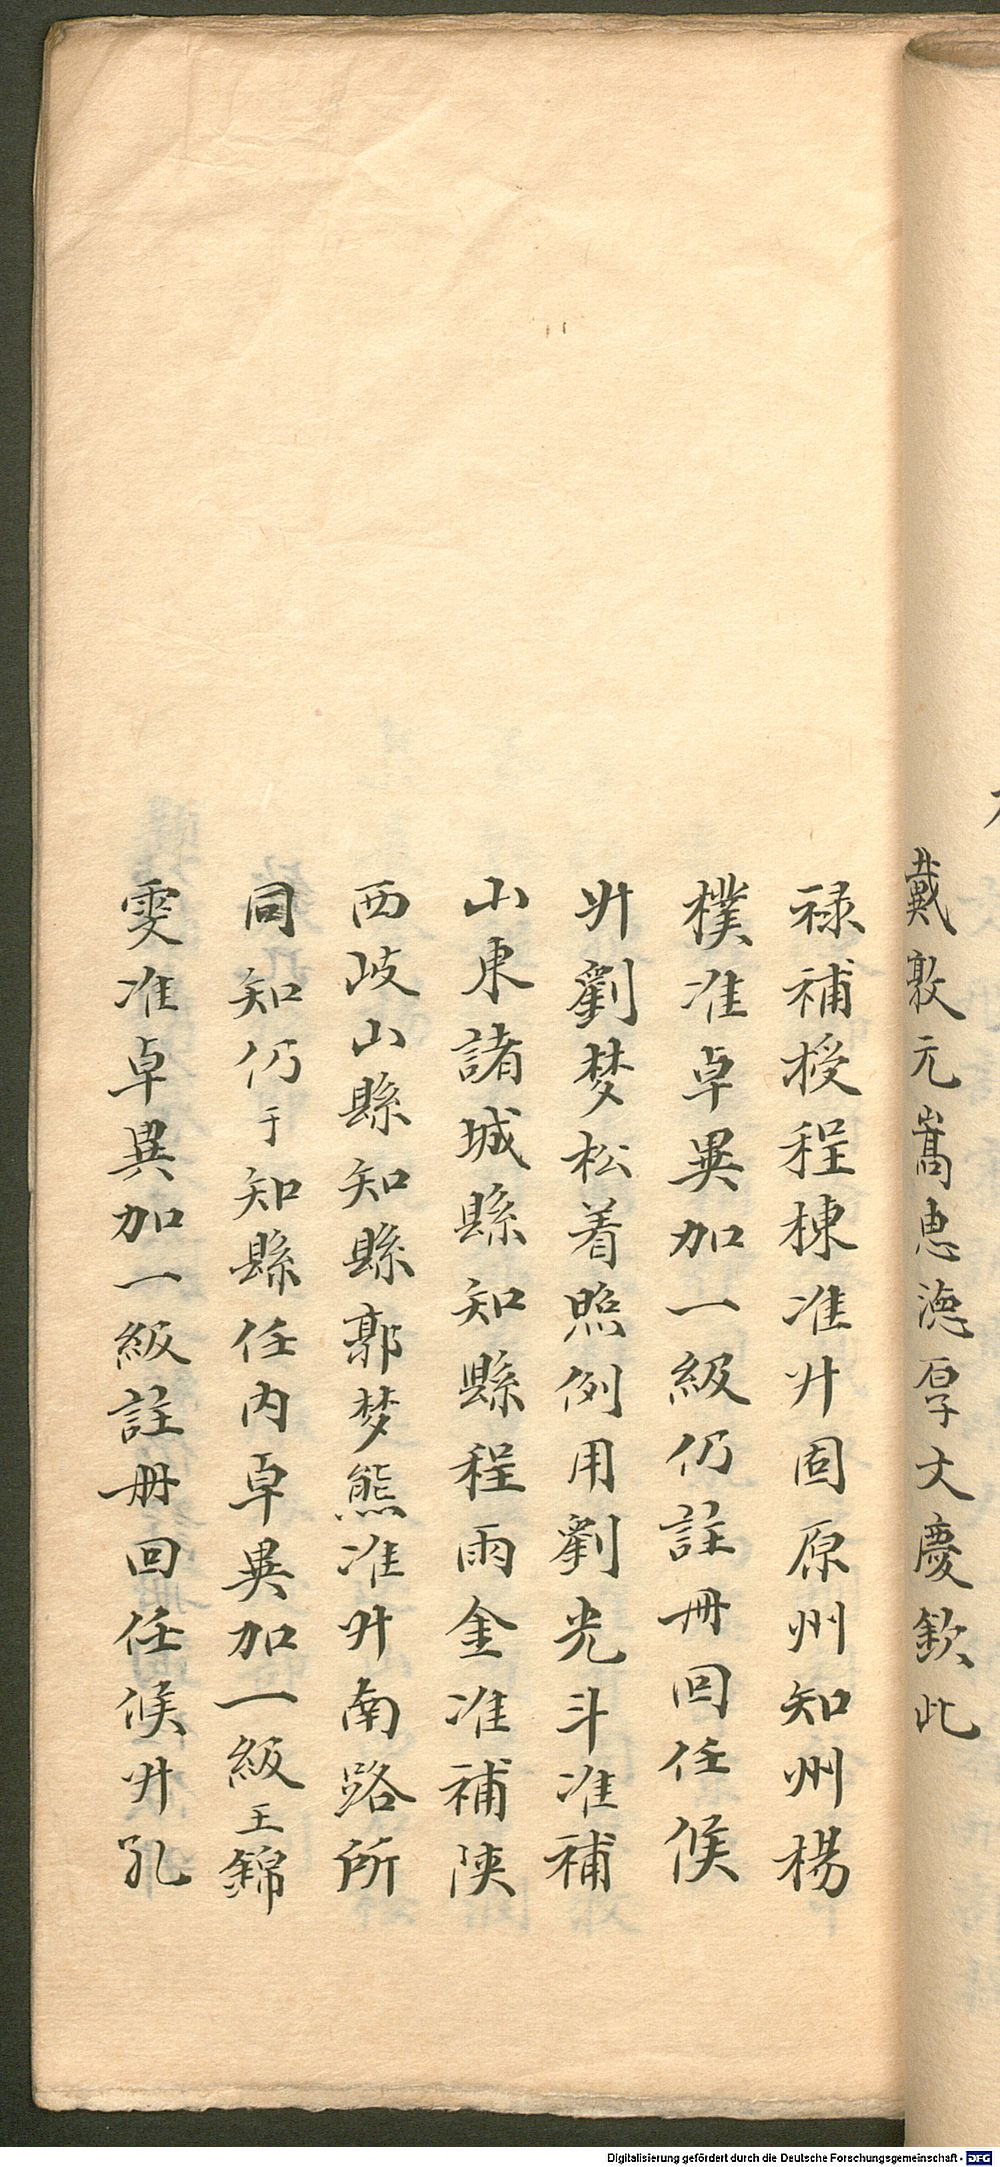 戴敦元嵩惠德厚文慶欽此
禄補授程棟准升固原州知州楊
樸准卓異加一級仍註冊回任候
升劉梦松着照例用劉光斗准補
山東諸城縣知縣程雨金准補陝
西岐山縣知縣郭梦熊准升南路所
同知仍于知縣任內卓異加一級王錦
雯准卓異加一級註冊回任候升孔
Digitalisierung gefördert durch die Deutsche Forschungsgemeinschaft - DFG